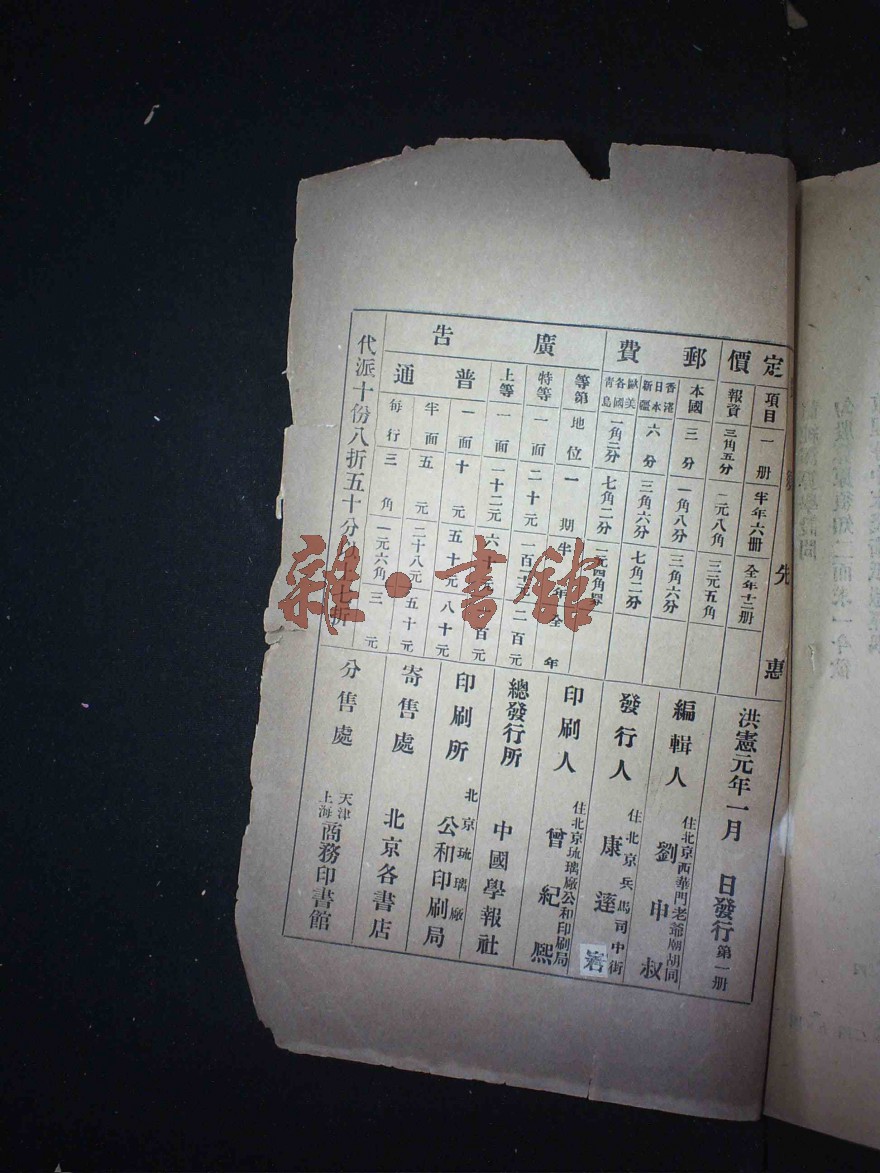 定價 先惠
郵費
廣告
項目 一册 半年六册 全年十二册
報資 三角五分 二元八角 三元五角
本國 三分 一角八分 三角六分
香港日本新疆 六分 三角六分 七角二分
歐美各國青島 一角二分 七角二分 一元四角
等第 地位 一期 半年 全年
特等 一面 二十元 一百二十元 二百元
上等 一面 一十二元 六十元 百元
普通 一面 十元 五十元 八十元
半面 五元 二十八元 五十元
每行 三角 一元六角 三元
代派十份八折五十分 七折
洪憲元年一月 日發行 第一册
編輯人 住北京西華門老爺廟胡同 劉申叔
發行人 住北京兵馬司中街 康達
印刷人 住北京琉璃廠公和印刷局 曾紀熙
總發行所 中國學報社
印刷所 北京琉璃廠 公和印刷局
寄售處 北京各書店
分售處 天津上海 商務印書館
雜·書館